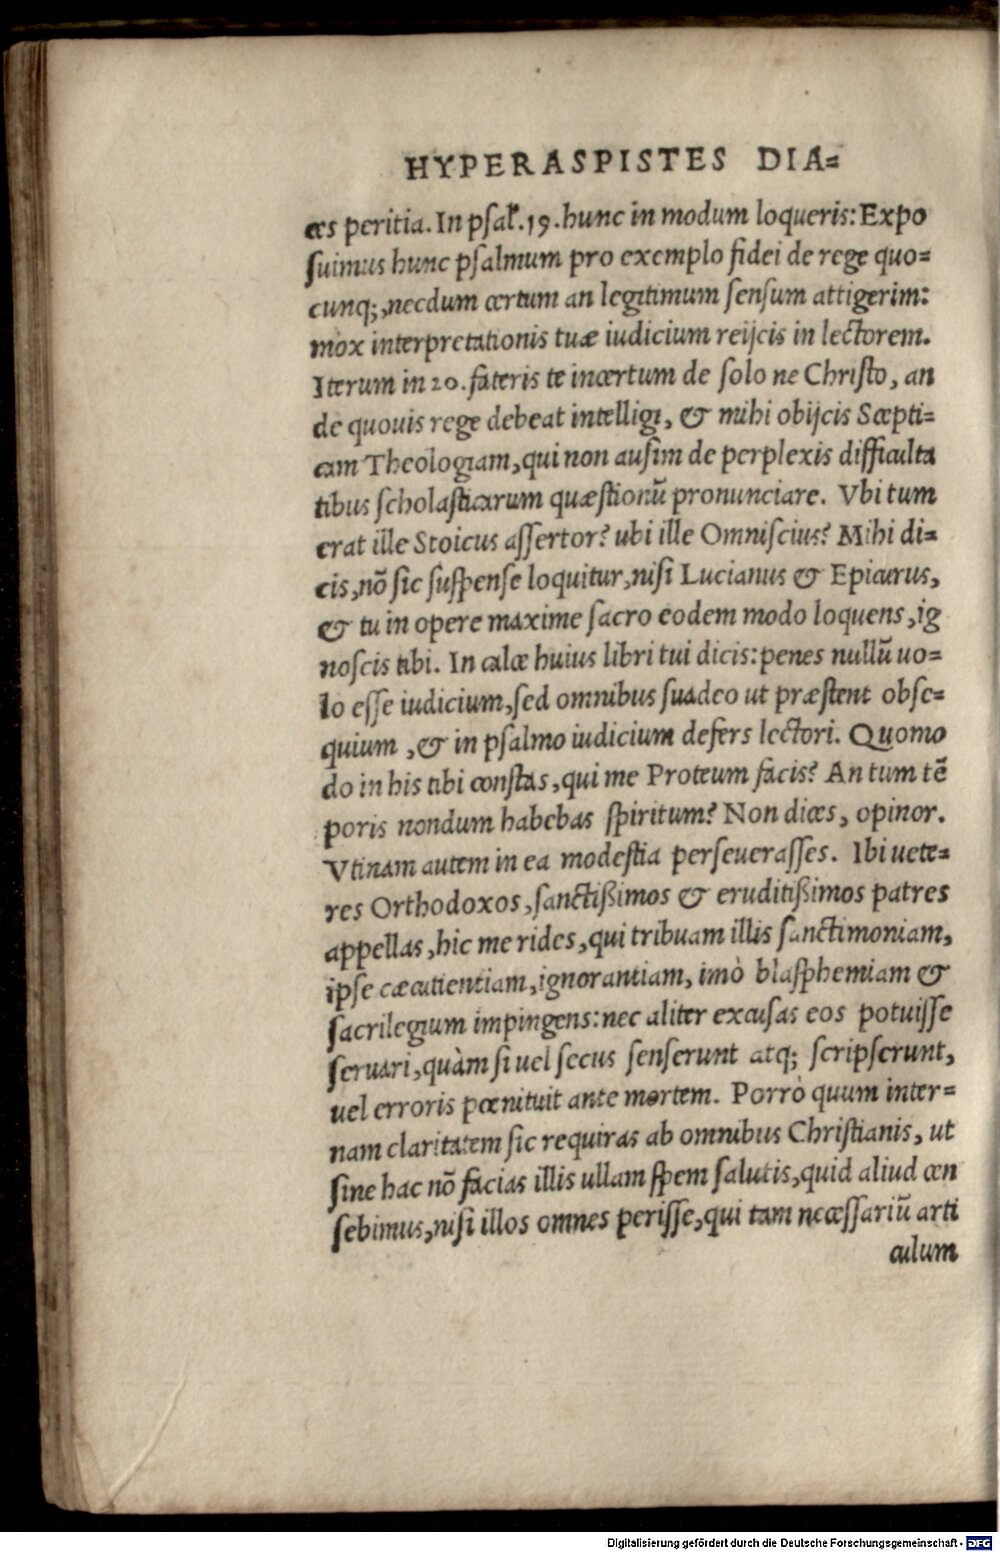 HYPERASPISTES DIA=
ces peritia. In psal. 19. hunc in modum loqueris: Expo
suimus hunc psalmum pro exemplo fidei de rege quo=
cunq;, necdum certum an legitimum sensum attigerim:
mox interpretationis tuæ iudicium reijcis in lectorem.
Iterum in 20. fateris te incertum de solo ne Christo, an
de quouis rege debeat intelligi, & mihi obijcis Scepti=
cam Theologiam, qui non ausim de perplexis difficulta
tibus scholasticarum quæstionū pronunciare. Vbi tum
erat ille Stoicus assertor? ubi ille Omniscius? Mihi di=
cis, nō sic suspense loquitur, nisi Lucianus & Epicurus,
& tu in opere maxime sacro eodem modo loquens, ig
noscis tibi. In calce huius libri tui dicis: penes nullū uo=
lo esse iudicium, sed omnibus suadeo ut præstent obse=
quium, & in psalmo iudicium defers lectori. Quomo
do in his tibi constas, qui me Proteum facis? An tum tē
poris nondum habebas spiritum? Non dices, opinor.
Vtinam autem in ea modestia perseuerasses. Ibi uete=
res Orthodoxos, sanctißimos & eruditißimos patres
appellas, hic me rides, qui tribuam illis sanctimoniam,
ipse cæcutientiam, ignorantiam, imò blasphemiam &
sacrilegium impingens: nec aliter excusas eos potuisse
seruari, quàm si uel secus senserunt atq; scripserunt,
uel erroris pœnituit ante mortem. Porrò quum inter=
nam claritatem sic requiras ab omnibus Christianis, ut
sine hac nō facias illis ullam spem salutis, quid aliud cen
sebimus, nisi illos omnes perisse, qui tam necessariū arti
culum
Digitalisierung gefördert durch die Deutsche Forschungsgemeinschaft - DFG